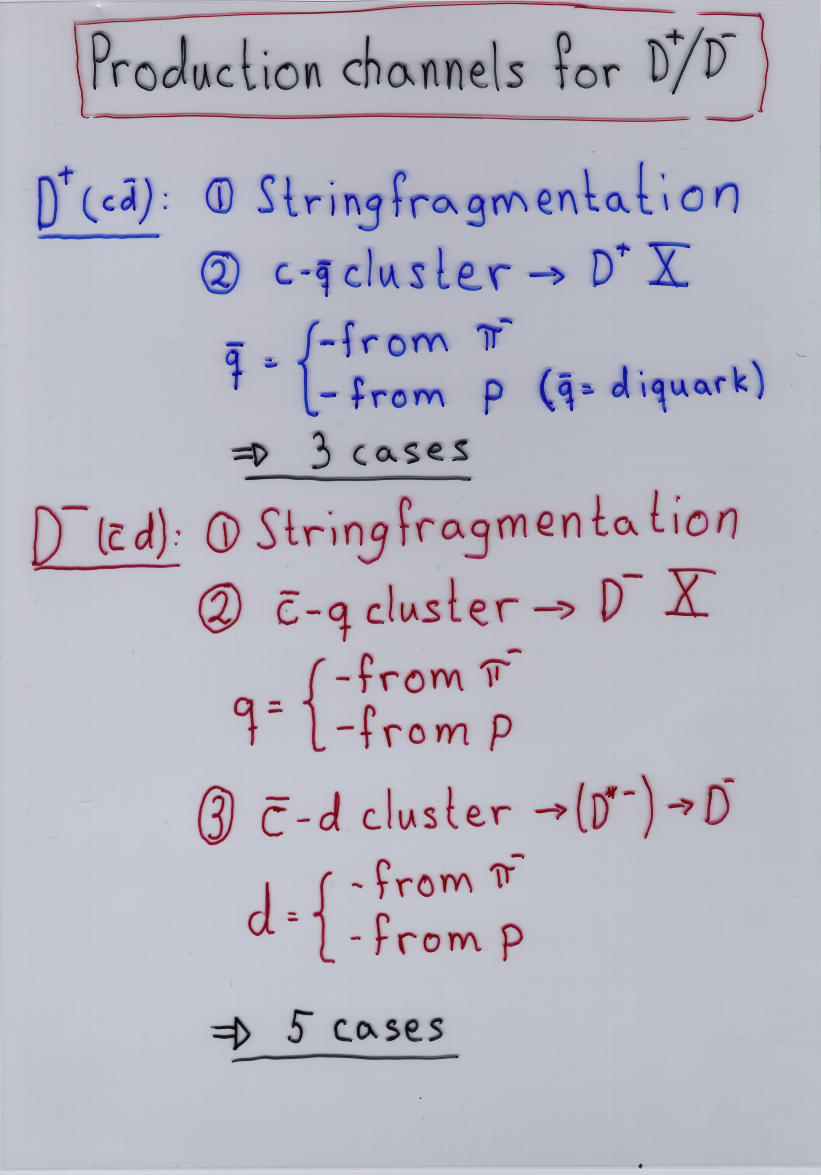 Production channels for D⁺/D⁻
D⁺(cd̄): ① Stringfragmentation
② c-q̄ cluster → D⁺ X
q̄ = { -from π⁻
-from p (q̄= diquark)
⇒ 3 cases
D⁻(c̄d): ① Stringfragmentation
② c̄-q cluster → D⁻ X
q = { -from π⁻
-from p
③ c̄-d cluster → (D*⁻) → D⁻
d = { -from π⁻
-from p
⇒ 5 cases